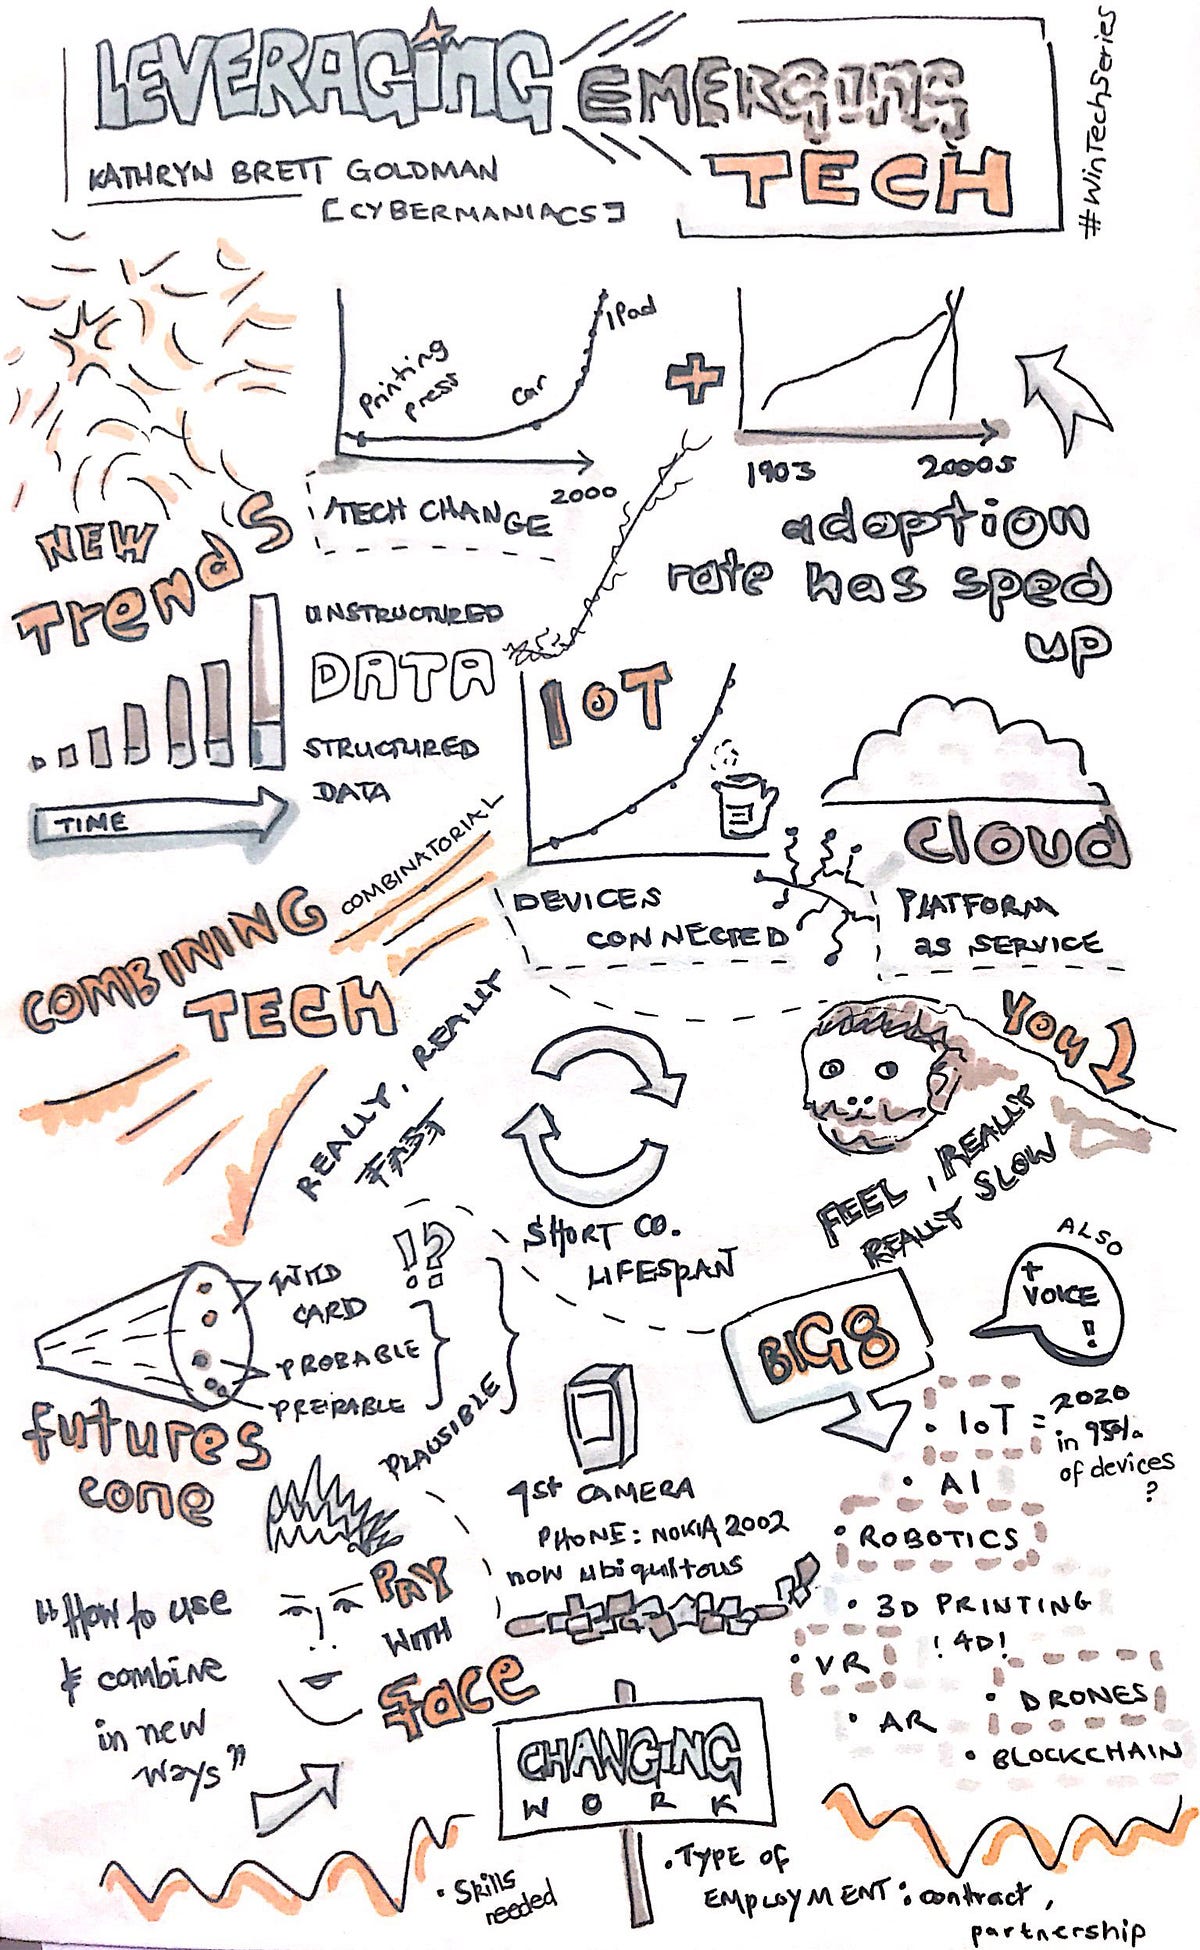 LEVERAGING EMERGING
TECH
#WinTechSeries
KATHRYN BRETT GOLDMAN
[CYBERMANIACS]
Printing
press
car
iPad
2000
TECH CHANGE
+
1903
2000s
adoption
rate has sped
up
NEW
Trends
UNSTRUCTURED
DATA
STRUCTURED
DATA
TIME
IoT
DEVICES
CONNECTED
cloud
PLATFORM
as SERVICE
COMBINING
TECH
COMBINATORIAL
REALLY, REALLY
FAST
SHORT CO.
LIFESPAN
YOU
FEEL, REALLY
REALLY SLOW
futures
cone
WILD
CARD
!?
PROBABLE
PREIRABLE
PLAUSIBLE
1st CAMERA
PHONE: NOKIA 2002
now ubiquitous
BIG 8
ALSO
+
VOICE
!
• IoT = 2020
in 95%
of devices
?
• AI
• ROBOTICS
• 3D PRINTING
! 4D!
• VR
• DRONES
• AR
• BLOCKCHAIN
"How to use
& combine
in new
ways"
PAY
WITH
face
CHANGING
WORK
• Skills
needed
• TYPE OF
EMPLOYMENT: contract,
partnership